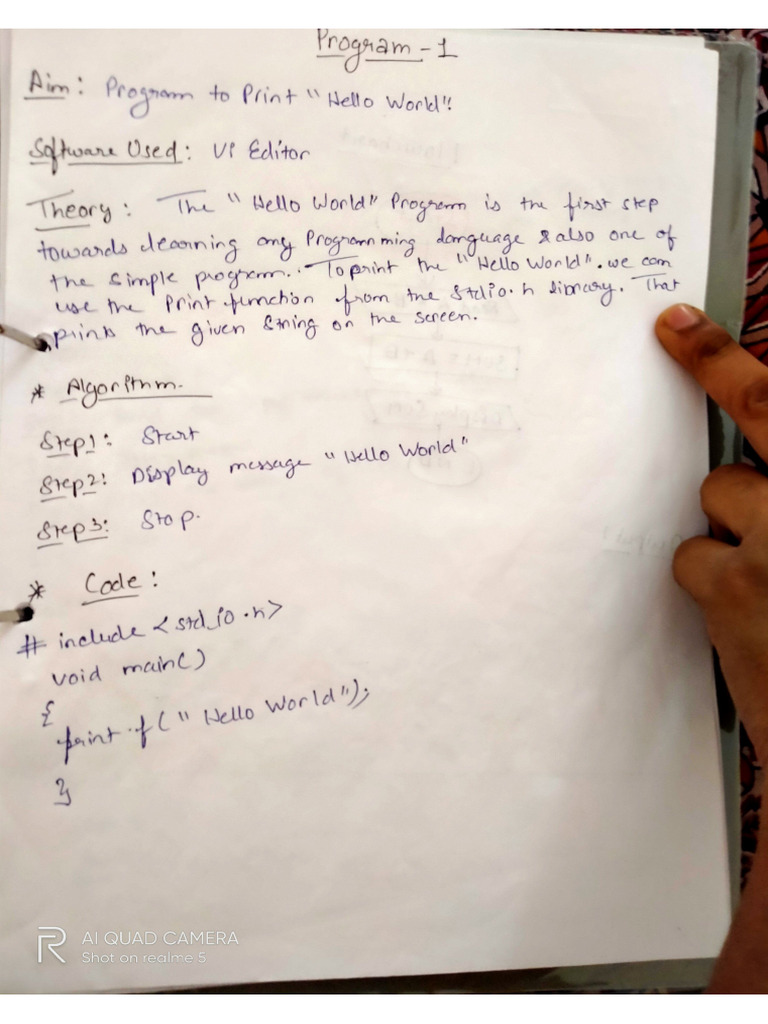 Program - 1
Aim: Program to Print "Hello World"!
Software Used: Vi Editor
Theory: The "Hello World" Program is the first step
towards learning any Programming language & also one of
the simple program.. To print the "Hello World". we can
use the Print.function from the stdio.h library. That
prints the given string on the screen.
* Algorithm.
Step1: Start
Step2: Display message "Hello World"
Step3: Stop.
* Code:
# include <std_io.h>
void main()
{
print.f("Hello World");
}
R AI QUAD CAMERA
Shot on realme 5